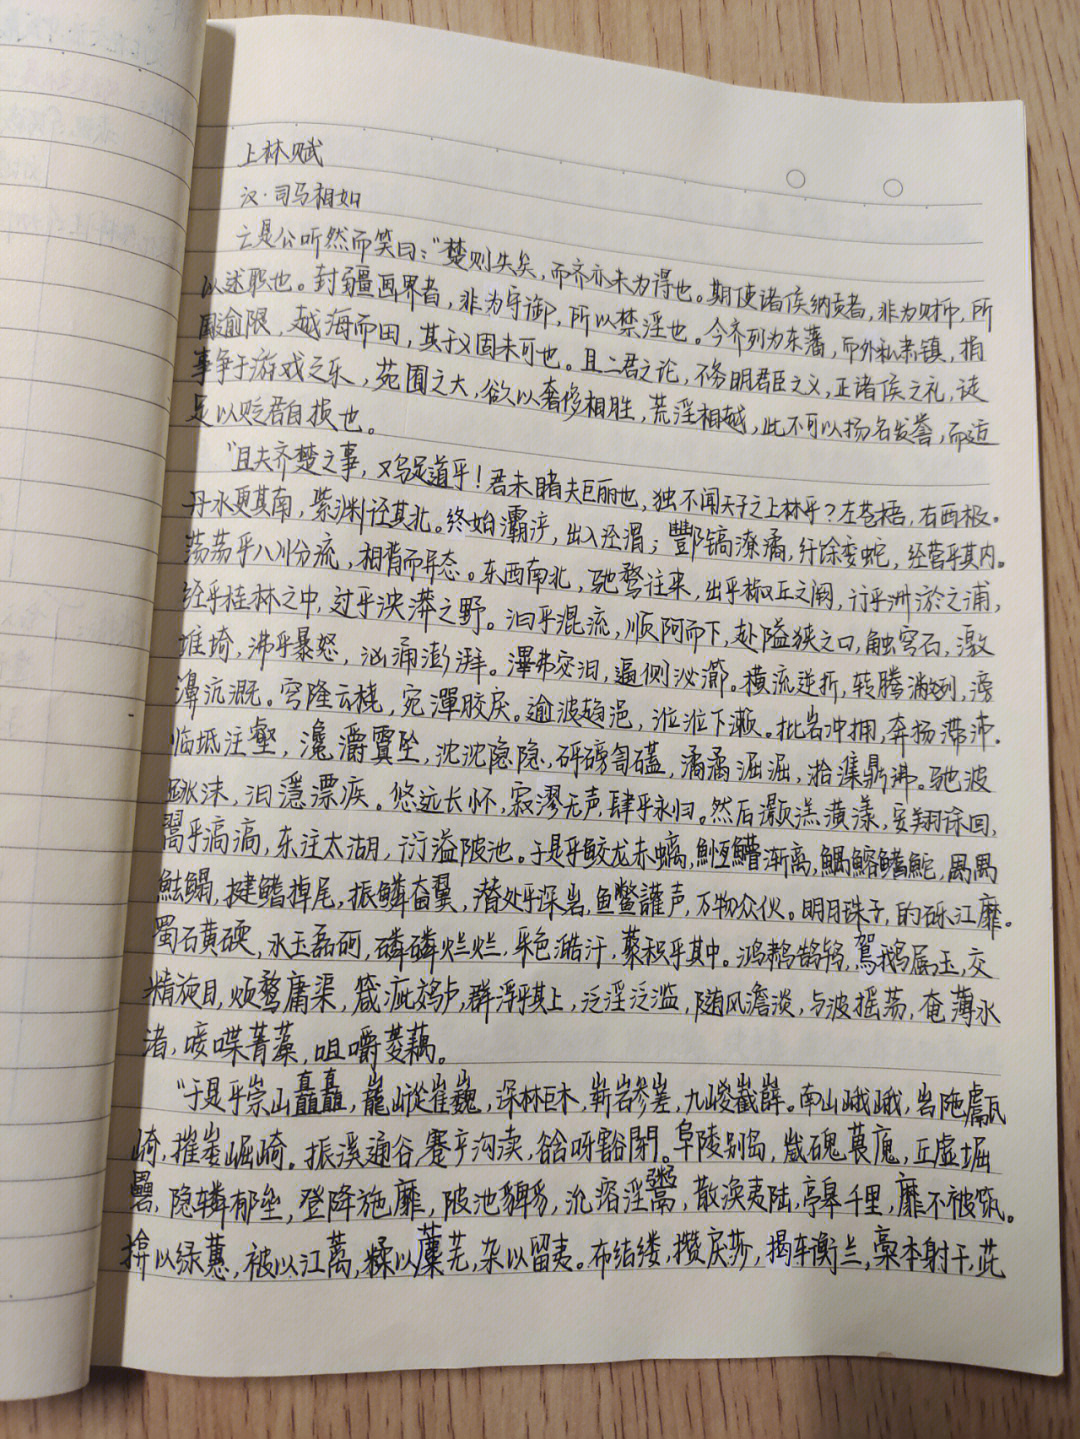 上林赋
汉·司马相如
亡是公听然而笑曰："楚则失矣，而齐亦未为得也。夫使诸侯纳贡者，非为财币，所
以述职也。封疆画界者，非为守御，所以禁淫也。今齐列为东藩，而外私肃慎，捐
国逾限，越海而田，其于义固未可也。且二君之论，不务明君臣之义，正诸侯之礼，徒
事争于游戏之乐，苑囿之大，欲以奢侈相胜，荒淫相越，此不可以扬名发誉，而适
足以贬君自损也。
"且夫齐楚之事，又乌足道乎！君未睹夫巨丽也，独不闻天子之上林乎？左苍梧，右西极。
丹水更其南，紫渊径其北。终始灞浐，出入泾渭；酆镐潦潏，纡馀委蛇，经营乎其内。
荡荡乎八川分流，相背而异态。东西南北，驰骛往来，出乎椒丘之阙，行乎洲淤之浦，
经乎桂林之中，过乎泱漭之野。汩乎混流，顺阿而下，赴隘狭之口，触穹石，激
堆埼，沸乎暴怒，汹涌澎湃。滭弗宓汩，逼侧泌瀄。横流逆折，转腾潎洌，滂
濞沆溉。穹隆云桡，宛潬胶戾。逾波趋浥，涖涖下濑。批岩冲拥，奔扬滞沛。
临坻注壑，瀺灂霣坠，沈沈隐隐，砰磅訇礚，潏潏淈淈，湁潗鼎沸。驰波
跳沫，汩㴔漂疾。悠远长怀，寂漻无声，肆乎永归。然后灏溔潢漾，安翔徐回，
翯乎滈滈，东注太湖，衍溢陂池。于是乎鲛龙赤螭，䱎䲛渐离，鰅鰫鳍鮀，禺禺
魼鳎，揵鳍掉尾，振鳞奋翼，潜处乎深岩，鱼鳖讙声，万物众伙。明月珠子，的砾江靡。
蜀石黄碝，水玉磊砢，磷磷烂烂，采色澔汗，藂积乎其中。鸿鹔鹄鸨，鴐鹅属玉，交
精旋目，烦鹜庸渠，箴疵鵁卢，群浮乎其上，泛淫泛滥，随风澹淡，与波摇荡，奄薄水
渚，唼喋菁藻，咀嚼菱藕。
"于是乎崇山矗矗，巃嵷崔巍，深林巨木，崭岩参嵳，九嵕巀嶭。南山峨峨，岩陁甗
崎，摧崣崛崎。振溪通谷，蹇产沟渎，谽呀豁閕。阜陵别岛，崴磈葨廆，丘虚堀
礨，隐辚郁𡾊，登降施靡，陂池貏豸，沇溶淫鬻，散涣夷陆，亭皋千里，靡不被筑。
揜以绿蕙，被以江蓠，糅以蘪芜，杂以留夷。布结缕，攒戾莎，揭车衡兰，槀本射干，茈